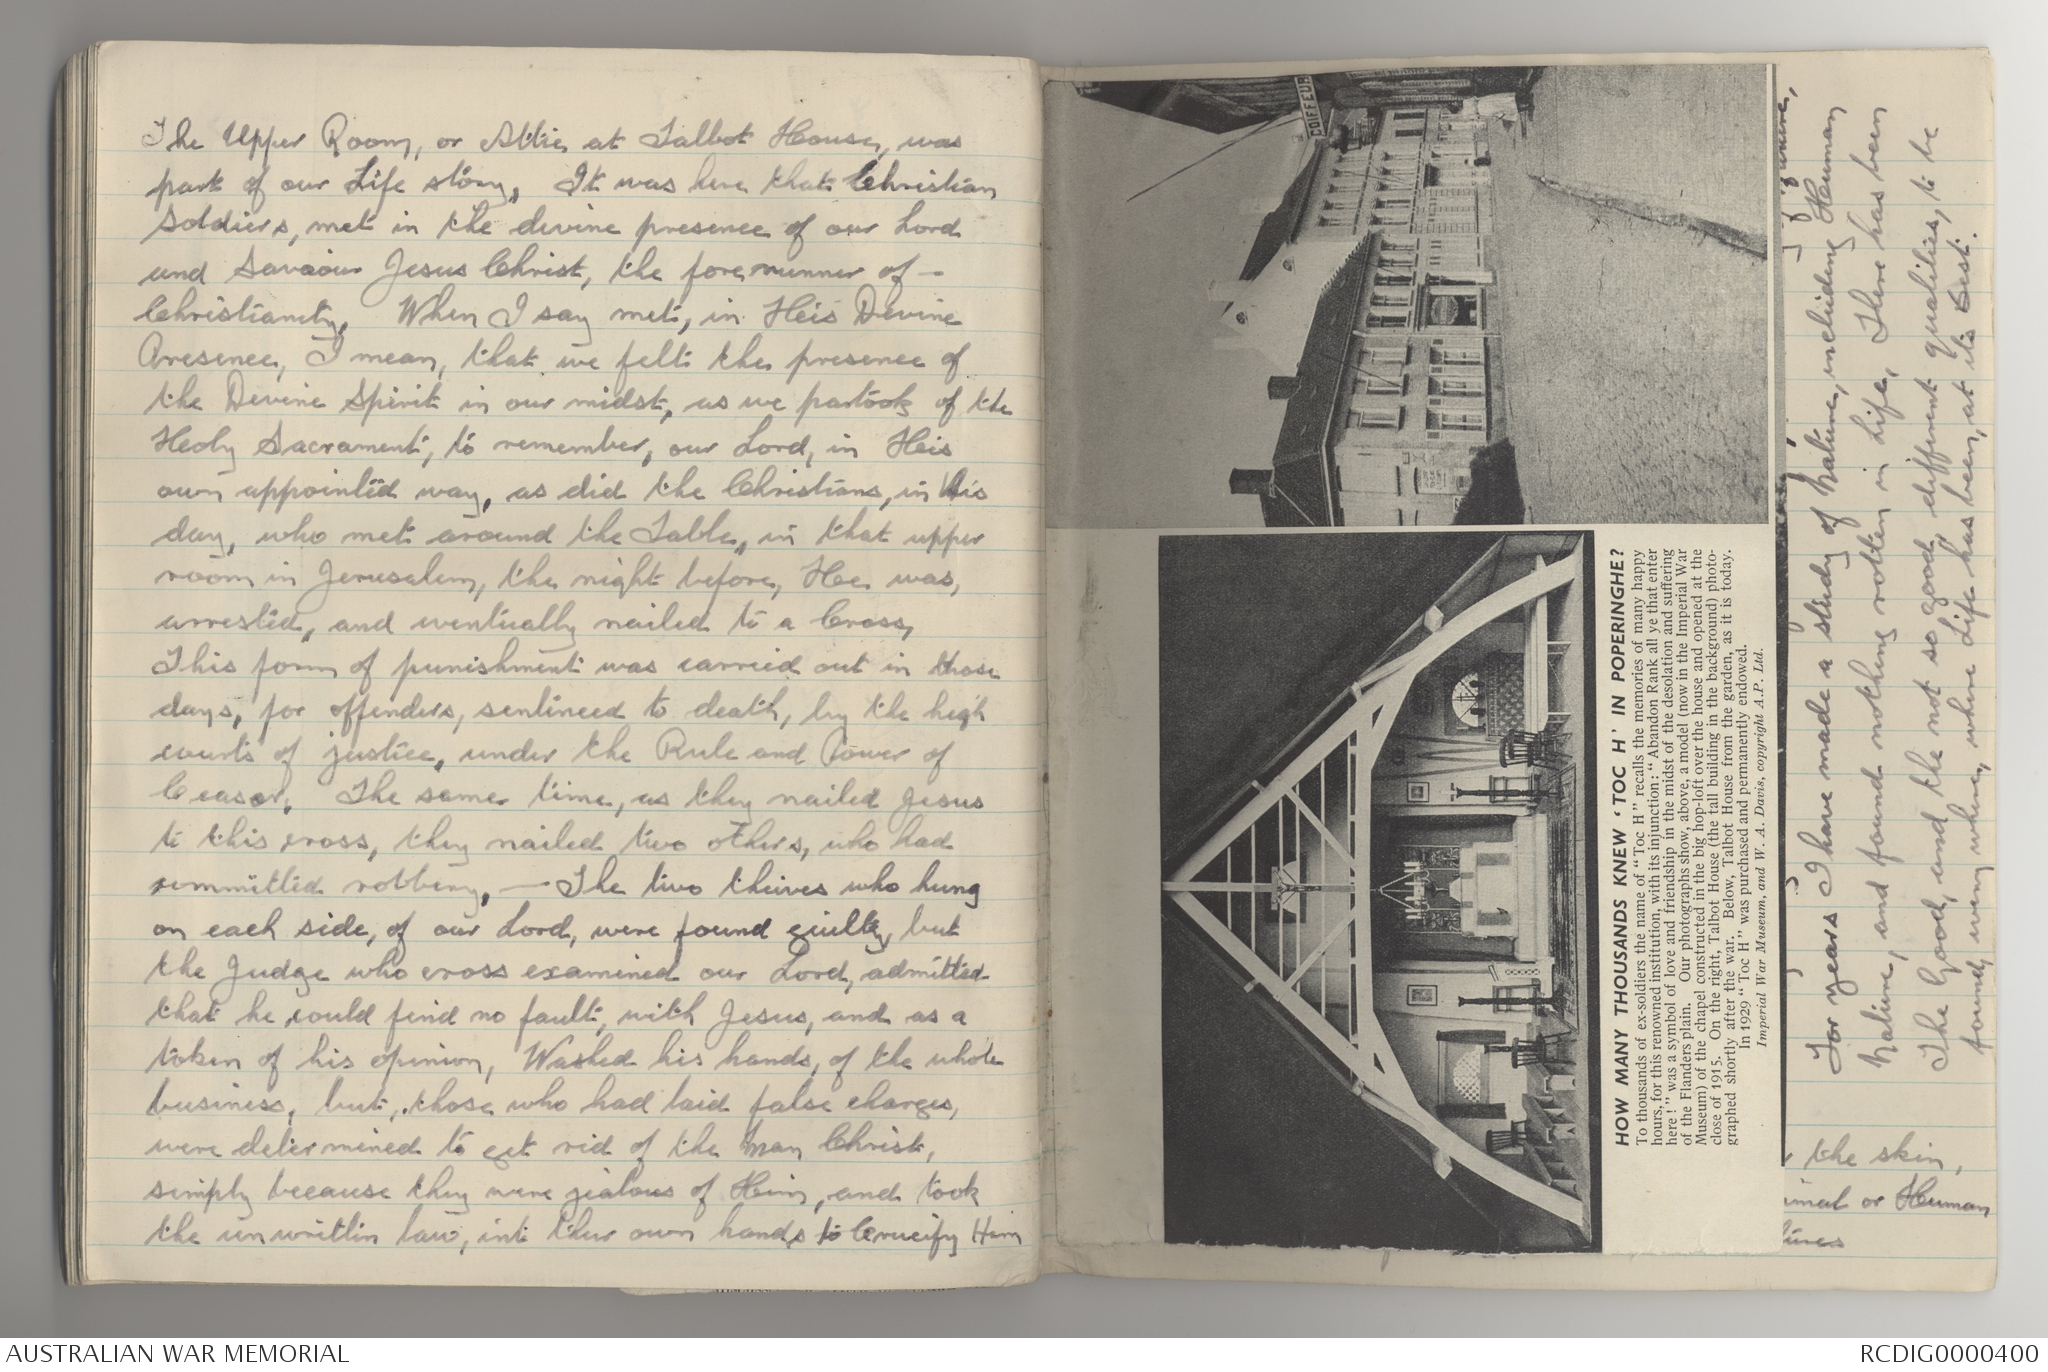 The Upper Room, or Attic at Talbot House, was
part of our Life story, It was here that Christian
Soldiers, met in the devine presence of our Lord
and Savaiour Jesus Christ, the fore runner of –
Christianity, When I say met, in His Devine
Presence, I mean, that we felt the presence of
the Devine Spirit in our midst, as we partook of the
Holy Sacrament, to remember, our Lord, in His
own appointed way, as did the Christians, in His
day, who met around the Table, in that upper
room in Jeruselem, the night before, He was,
arrested, and eventually nailed to a Cross,
This form of punishment was carried out in those
days, for offenders, sentinced to death, by the high
courts of justice, under the Rule and Power of
Ceasor, The same time, as they nailed Jesus
to this cross, they nailed two others, who had
committed robbery, — The two theives who hung
on each side, of our Lord, were found guilty, but
the Judge who cross examined our Lord, admitted
that he could find no fault, with Jesus, and as a
token of his opinion, Washed his hands, of the whole
business, but, those who had laid false charges,
were determined to get rid of the Man Christ,
simply because they were jealous of Him, and took
the unwritten law, into their own hands to Crucify Him
COIFFEUR
HOW MANY THOUSANDS KNEW 'TOC H' IN POPERINGHE?
To thousands of ex-soldiers the name of "Toc H" recalls the memories of many happy
hours, for this renowned institution, with its injunction: "Abandon Rank all ye that enter
here!" was a symbol of love and friendship in the midst of the desolation and suffering
of the Flanders plain. Our photographs show, above, a model (now in the Imperial War
Museum) of the chapel constructed in the big hop-loft over the house and opened at the
close of 1915. On the right, Talbot House (the tall building in the background) photo-
graphed shortly after the war. Below, Talbot House from the garden, as it is today.
In 1929 "Toc H" was purchased and permanently endowed.
Imperial War Museum, and W. A. Davis, copyright A.P. Ltd.
For years I have made a study of Nature, including Human
Nature, and found nothing rotten in Life, There has been
The Good, and the not so good, different qualities, to be
found every where, where Life has been, at its Best.
the skin,
or Human
AUSTRALIAN WAR MEMORIAL
RCDIG0000400